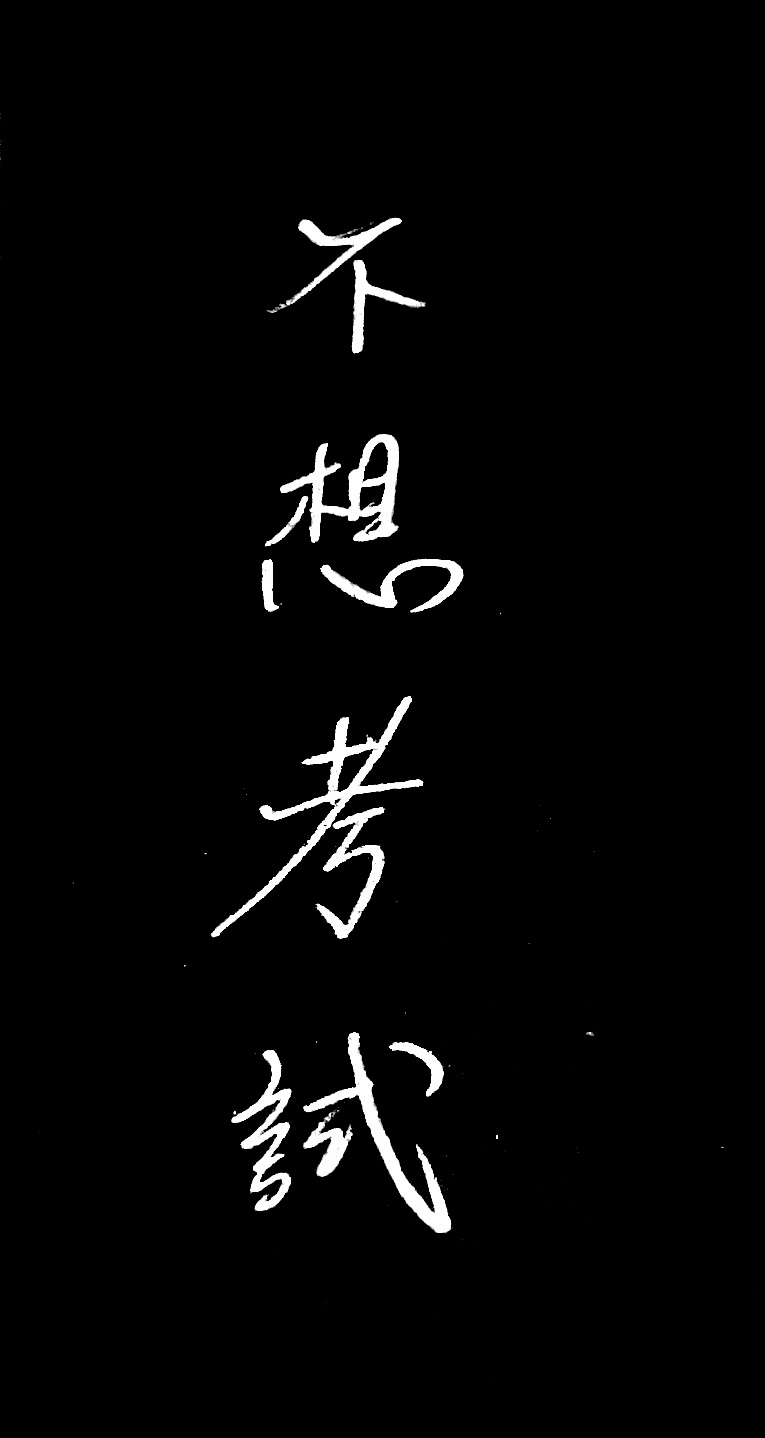 不想考試